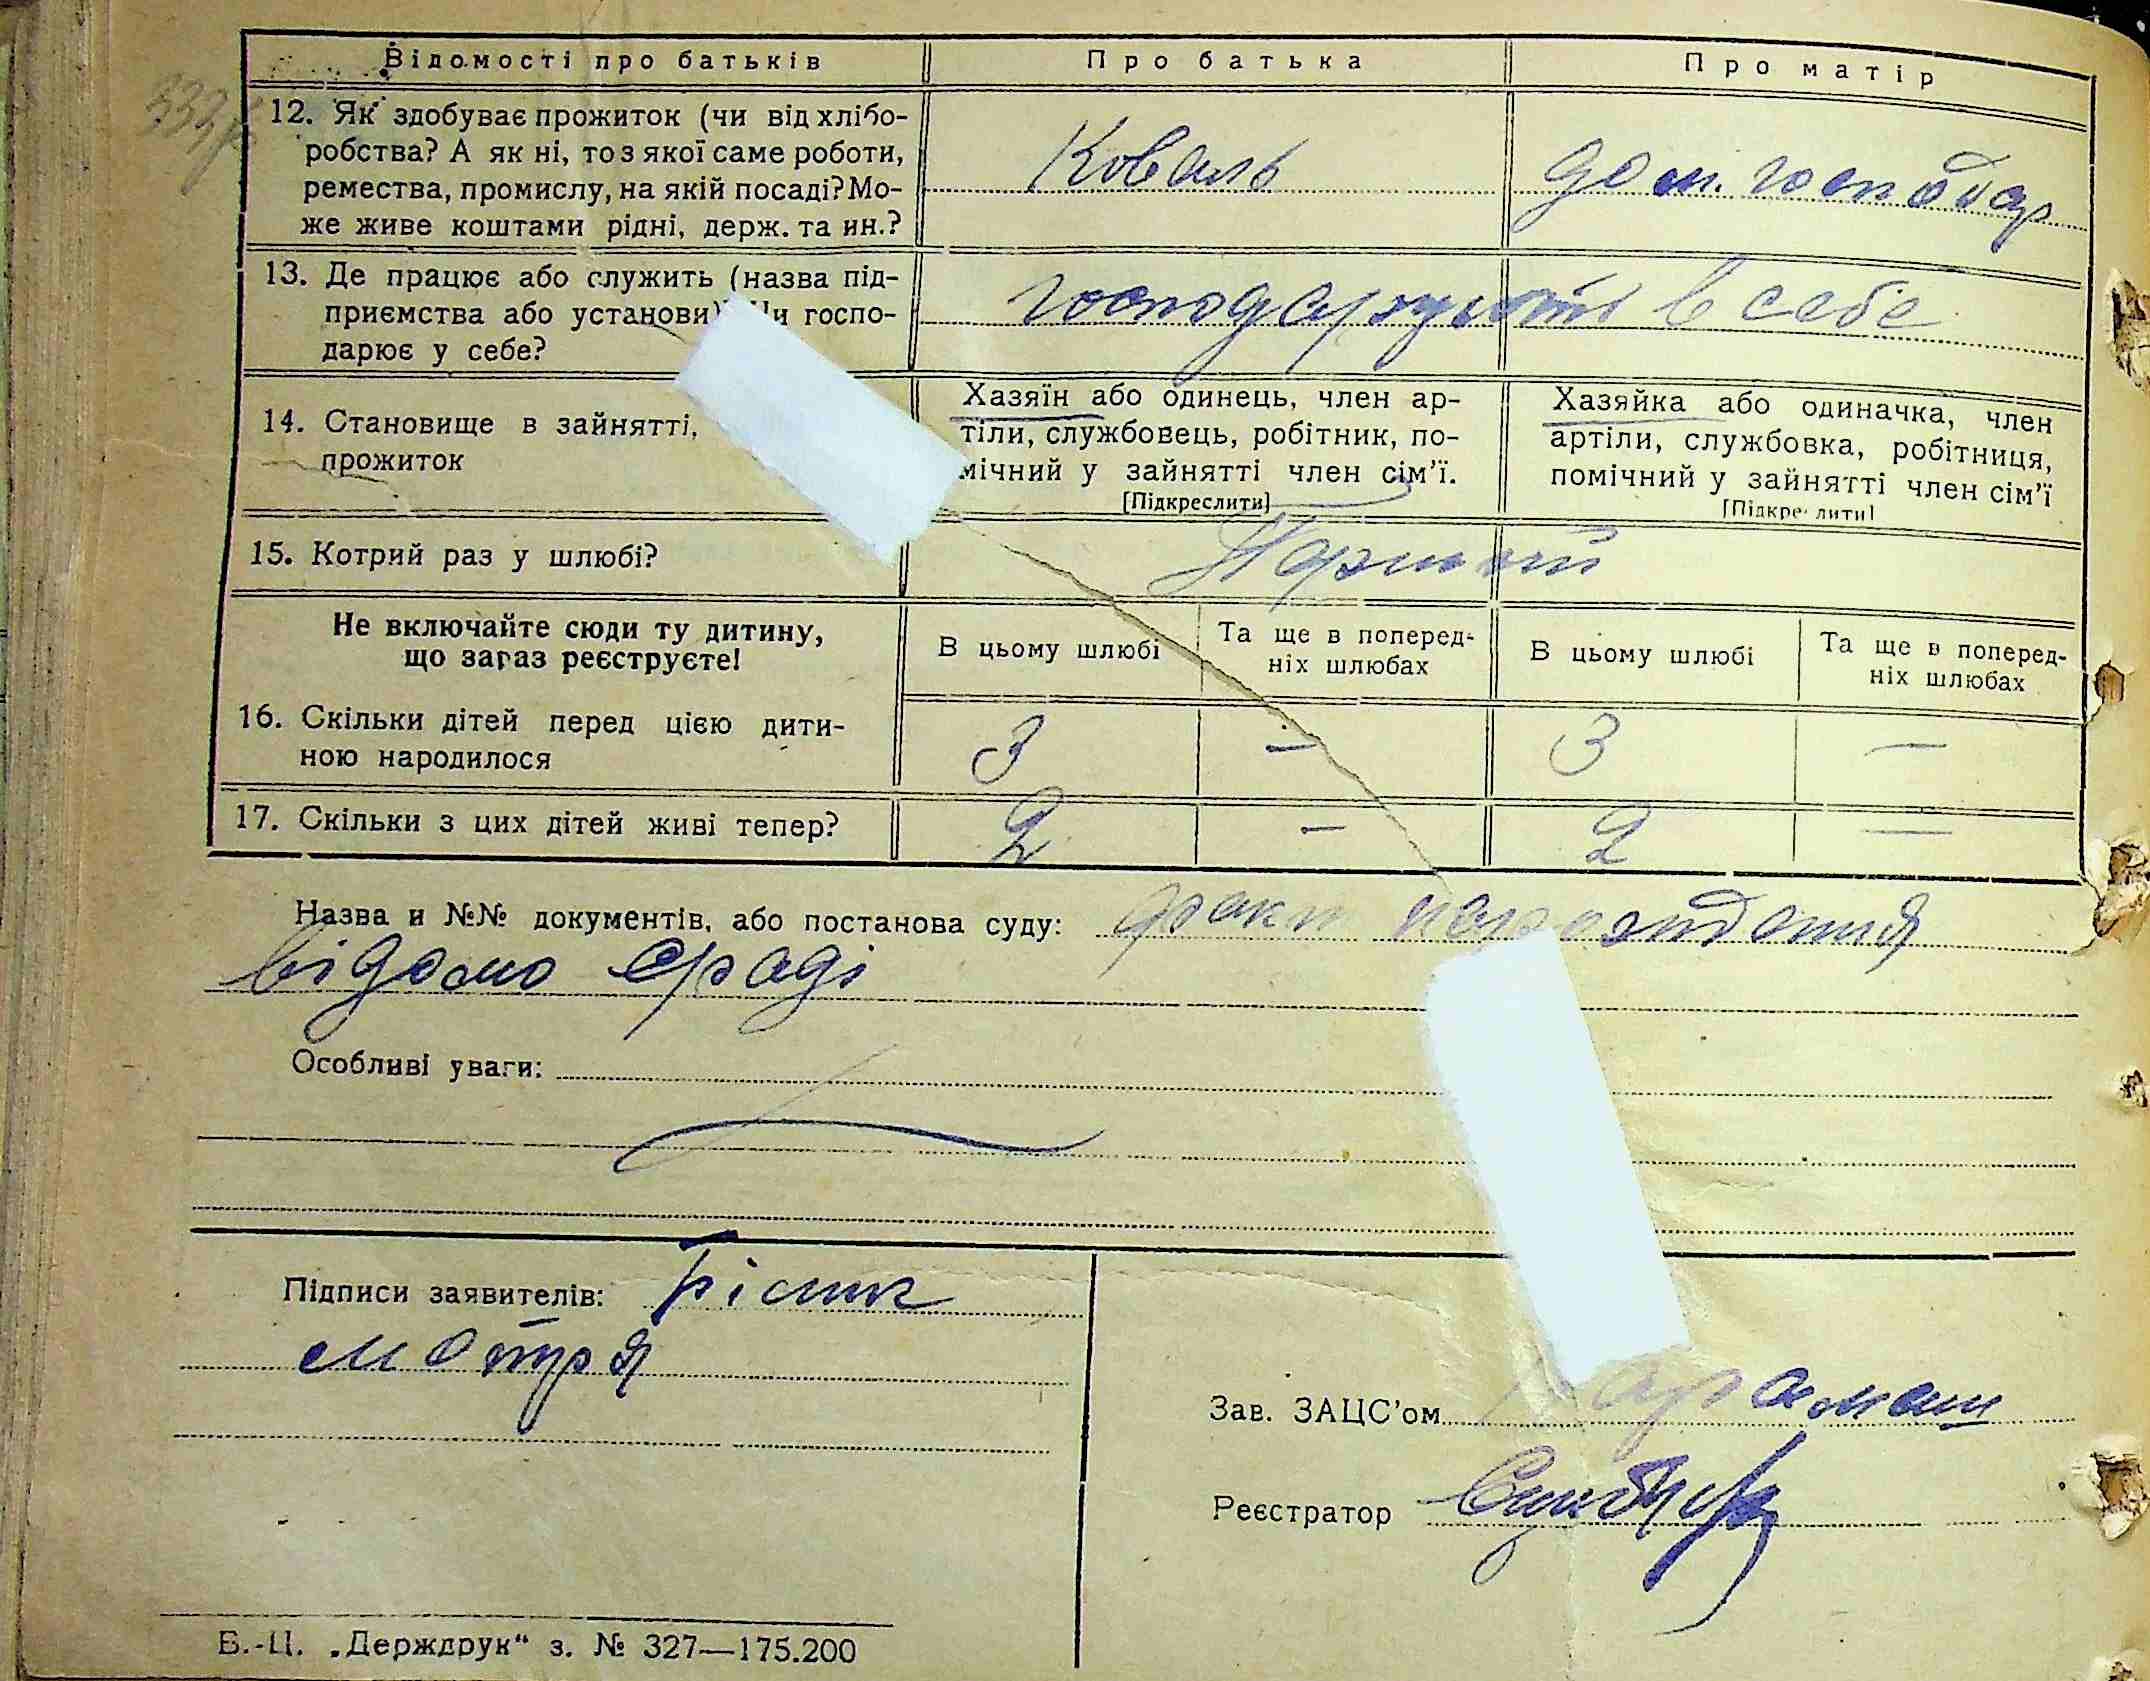 Відомості про батьків Про батька Про матір
12. Як здобуває прожиток (чи від хлібо-
робства? А як ні, то з якої саме роботи,
ремества, промислу, на якій посаді? Мо-
же живе коштами рідні, держ. та ин.?
Коваль дом. господар
13. Де працює або служить (назва під-
приємства або установи) Чи госпо-
дарює у себе?
господарують в себе
14. Становище в зайнятті,
прожиток
Хазяїн або одинець, член ар-
тіли, службовець, робітник, по-
мічний у зайнятті член сім'ї.
[Підкреслити]
Хазяйка або одиначка, член
артіли, службовка, робітниця,
помічний у зайнятті член сім'ї
[Підкреслити]
15. Котрий раз у шлюбі?
Не включайте сюди ту дитину,
що зараз реєструєте!
В цьому шлюбі
Та ще в поперед-
ніх шлюбах
В цьому шлюбі
Та ще в поперед-
ніх шлюбах
16. Скільки дітей перед цією дити-
ною народилося
3 — 3 —
17. Скільки з цих дітей живі тепер? 2 — 2 —
Назва и №№ документів, або постанова суду: факт
відомо с/раді
Особливі уваги:
Підписи заявителів:
Мотря
Зав. ЗАЦС'ом
Реєстратор
Б.-Ц. „Держдрук“ з. № 327—175.200